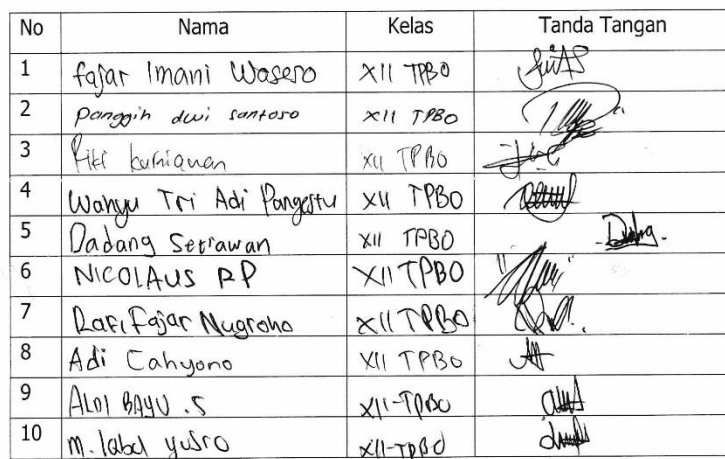 No Nama Kelas Tanda Tangan
1 Fajar Imani Wasero XII TPBO
2 Panggih dwi santoso XII TPBO
3 Riki kurniawan XII TPBO
4 Wahyu Tri Adi Pangestu XII TPBO
5 Dadang Setiawan XII TPBO
6 NICOLAUS RP XII TPBO
7 Rafi Fajar Nugroho XII TPBO
8 Adi Cahyono XII TPBO
9 ALDI BAYU .S XII-TPBO
10 M. yusro XII-TPBO